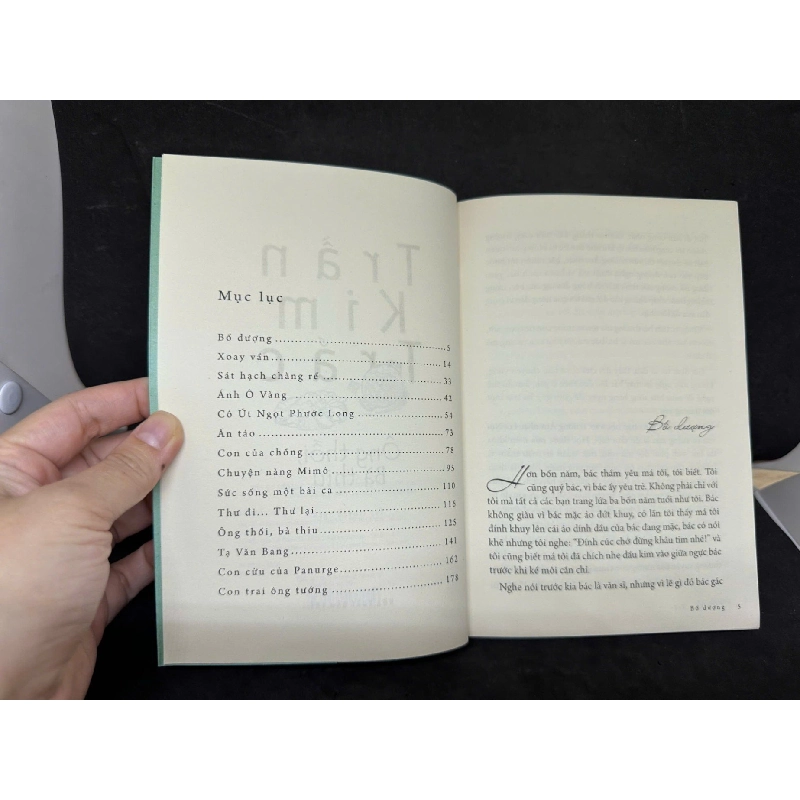 Mục lục
Bố dượng 5
Xoay vần 14
Sát hạch chàng rể 33
Ánh Ở Vàng 42
Cô Út Ngọt Phước Long 54
Ăn táo 73
Con của chồng 78
Chuyện nàng Mimô 95
Sức sống một bài ca 110
Thư đi... Thư lại 118
Ông thổi, bà thìu 125
Tạ Văn Bang 141
Con cừu của Panurge 162
Con trai ông tướng 178
Bố dượng
Hơn bốn năm, bác thầm yêu má tôi, tôi biết. Tôi
cũng quý bác, vì bác ấy yêu trẻ. Không phải chỉ với
tôi mà tất cả các bạn trang lứa ba bốn năm tuổi như tôi. Bác
không giàu vì bác mặc áo đứt khuy, có lần tôi thấy má tôi
đính khuy lên cái áo dính dầu của bác đang mặc, bác có nói
khẽ nhưng tôi nghe: "Đính cúc chớ đừng khâu tim nhé!" và
tôi cũng biết má tôi đã chích nhẹ đầu kim vào giữa ngực bác
trước khi kê môi cắn chỉ.
Nghe nói trước kia bác là văn sĩ, nhưng vì lẽ gì đó bác gác
Bố dượng 5
Trần
Kim
Trắc
Ông thổi
bà thìu